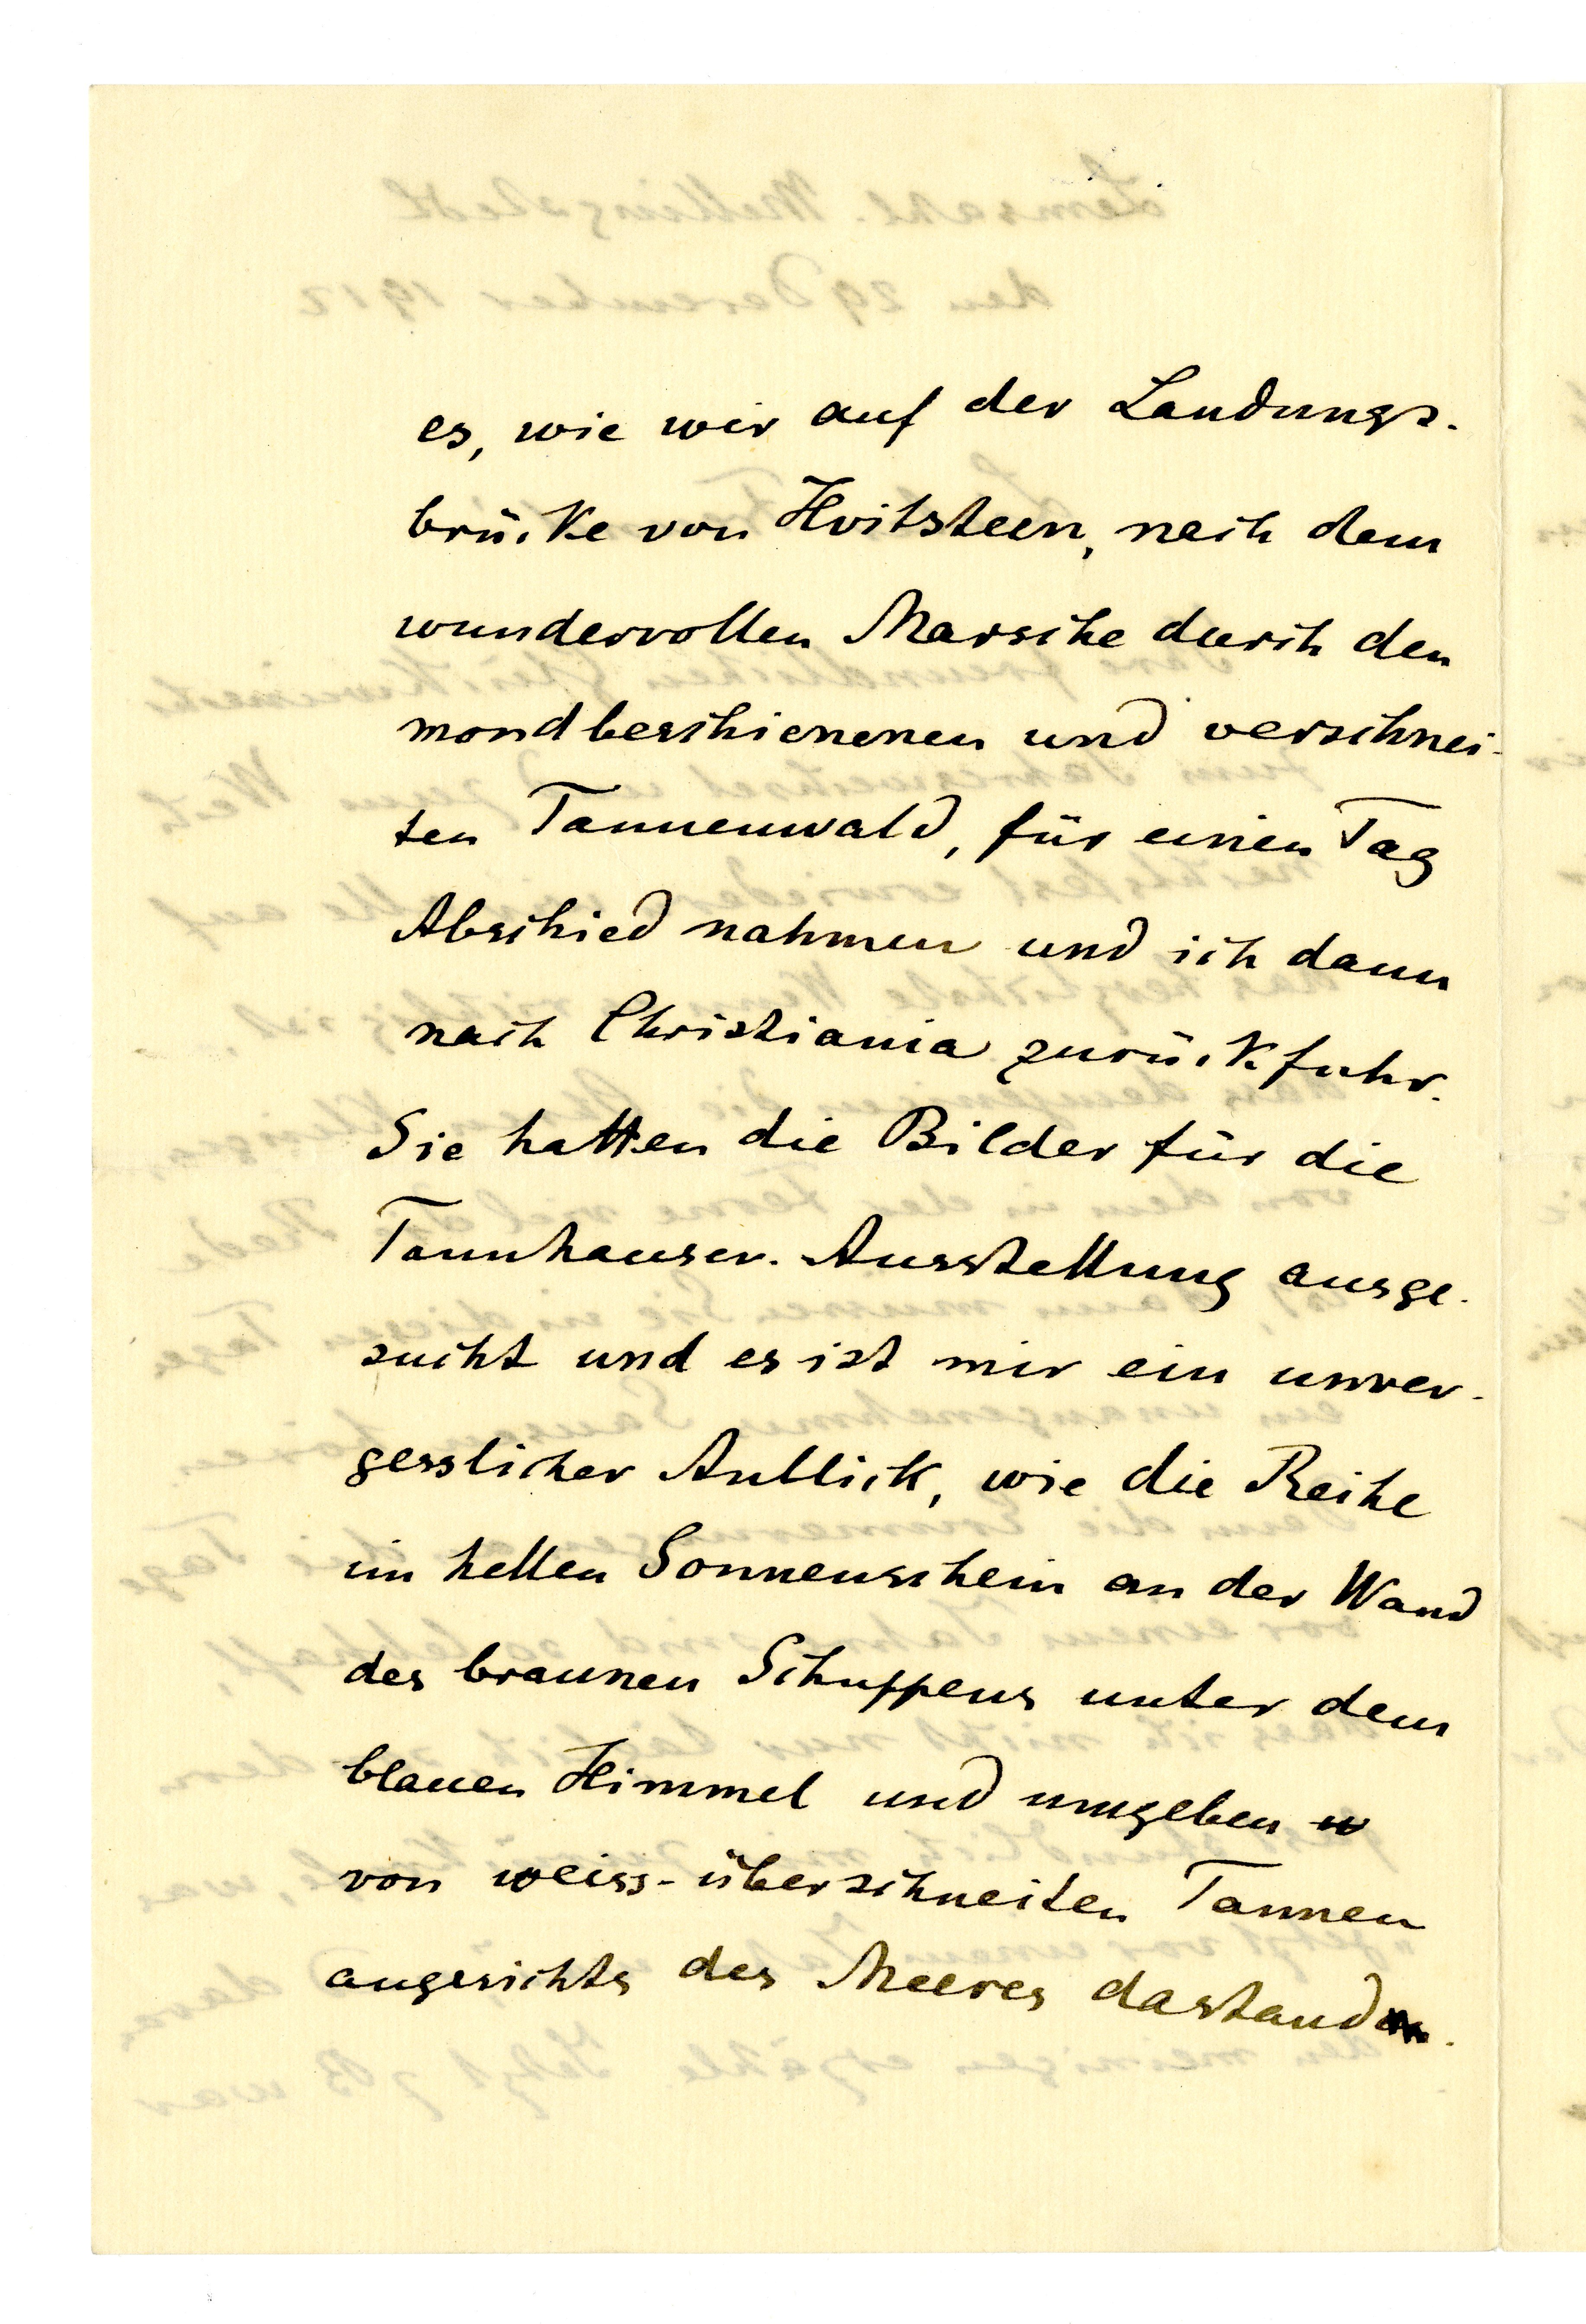 es, wie wir auf der Landungs-
brücke von Hvitsteen, nach dem
wundervollen Marsche durch den
mondbeschienenen und verschnei-
ten Tannenwald, für einen Tag
Abschied nahmen und ich dann
nach Christiania zurückfuhr.
Sie hatten die Bilder für die
Tannhauser-Ausstellung ausge-
sucht und es ist mir ein unver-
gesslicher Anblick, wie die Reihe
im hellen Sonnenschein an der Wand
des braunen Schuppens unter dem
blauen Himmel und umgeben
von weiss-überschneiten Tannen
angesichts des Meeres dastand.